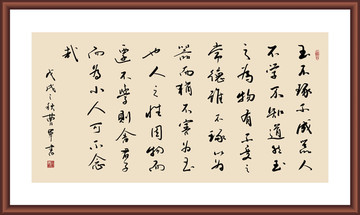 玉不琢不成器人
不学不知道然玉
之为物有不变之
常德虽不琢以为
器而犹不害为玉
也人之性因物而
迁不学则舍君子
而为小人可不念
哉
戊戌之秋曹军书